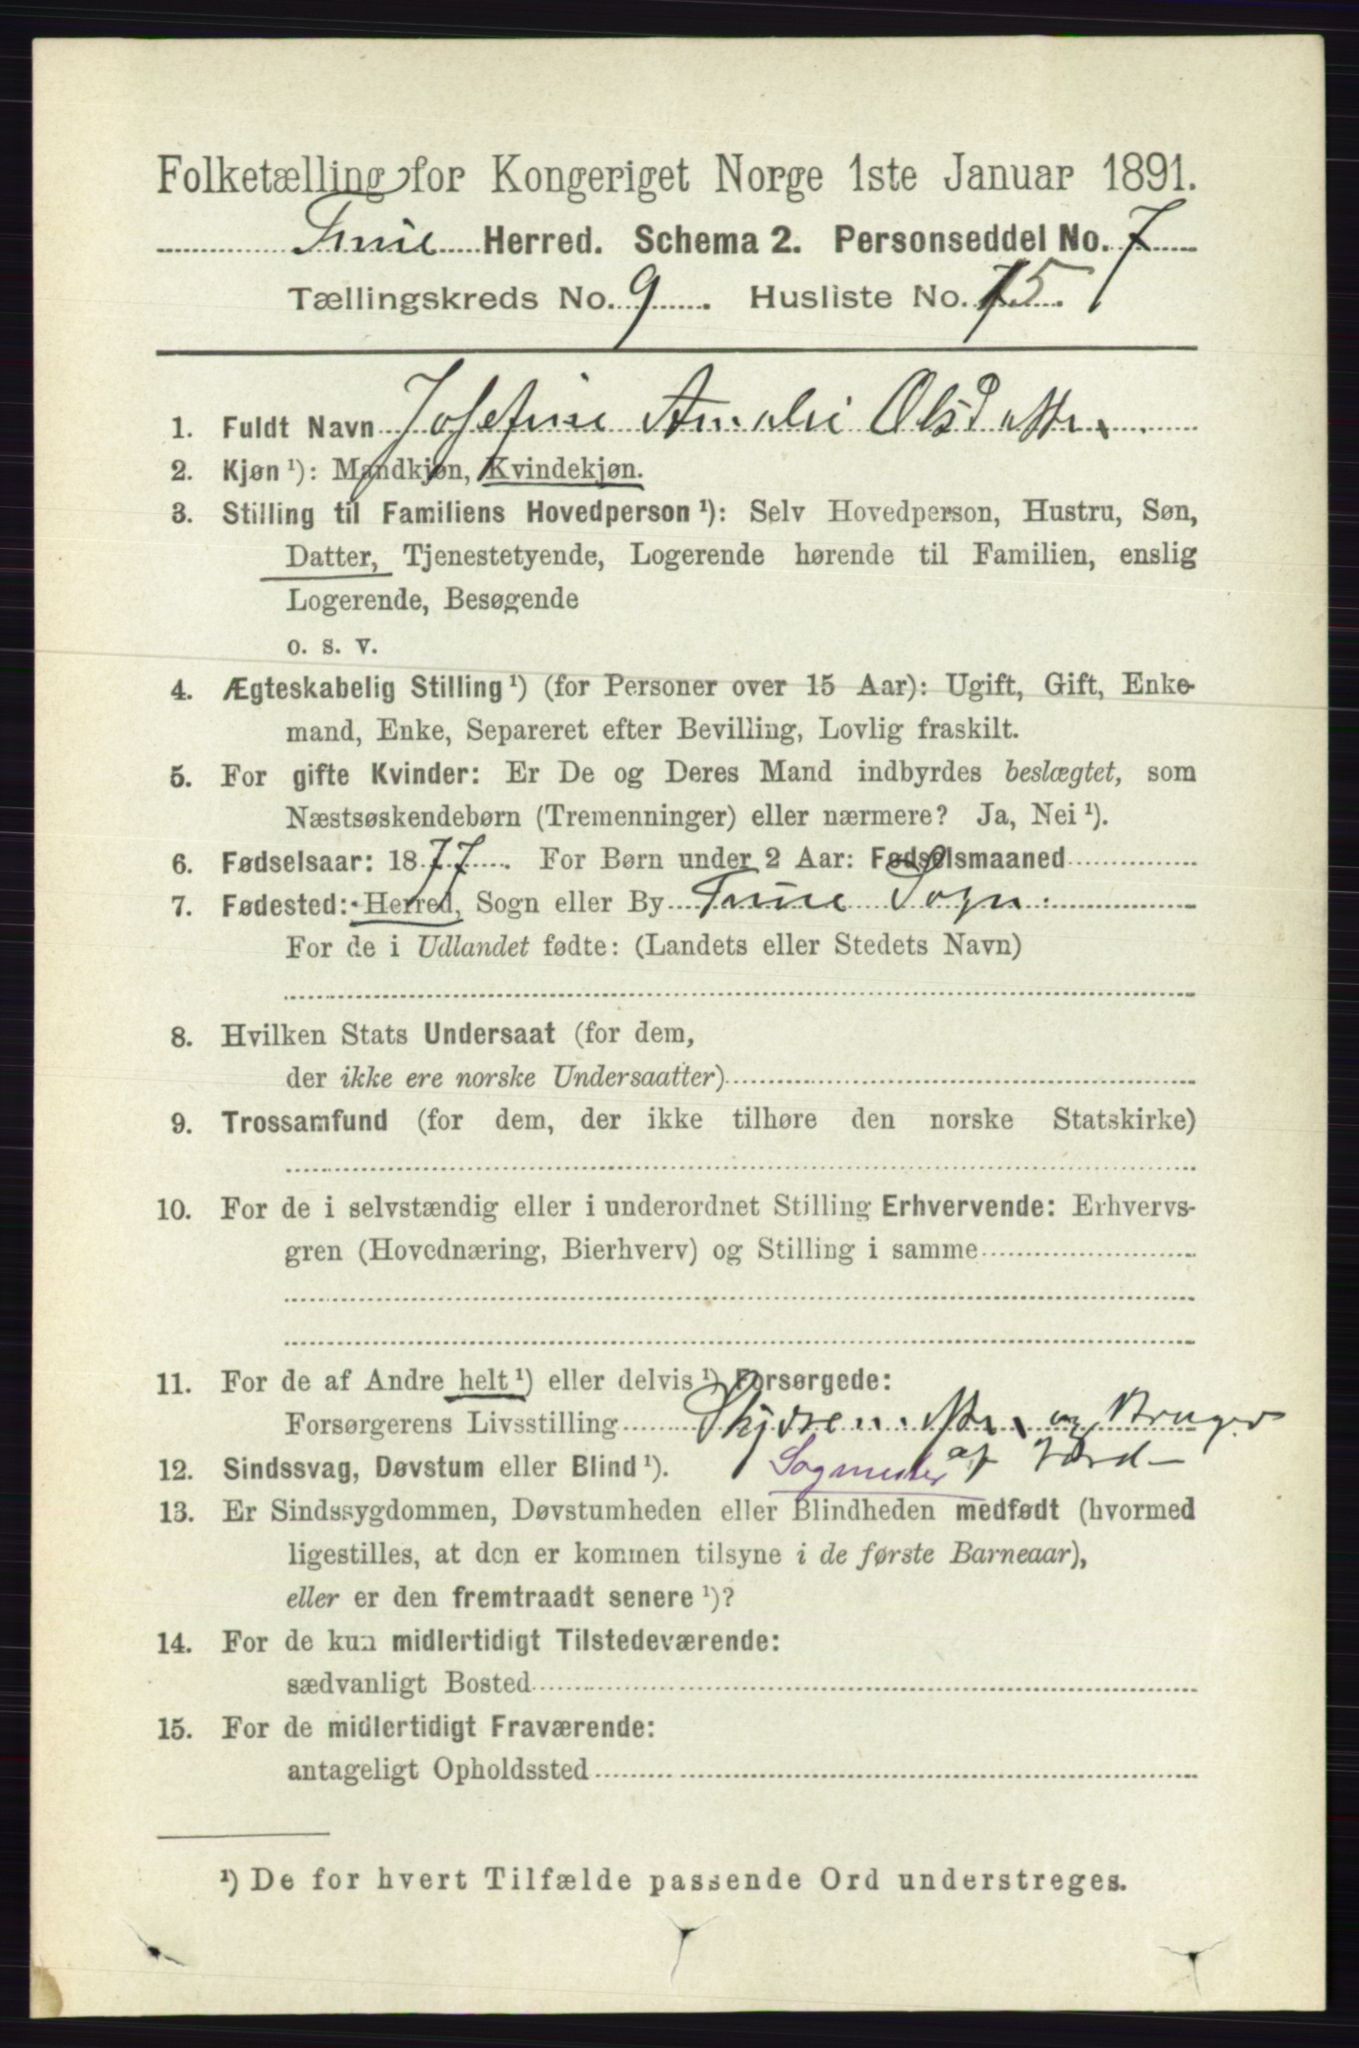 Folketælling for Kongeriget Norge 1ste Januar 1891.
Tune Herred. Schema 2. Personseddel No. 7
Tællingskreds No. 9. Husliste No. 75.
1. Fuldt Navn Josefine Amalie Olsdatter.
2. Kjøn ¹): Mandkjøn, Kvindekjøn.
3. Stilling til Familiens Hovedperson ¹): Selv Hovedperson, Hustru, Søn,
Datter, Tjenestetyende, Logerende hørende til Familien, enslig
Logerende, Besøgende
o. s. v.
4. Ægteskabelig Stilling ¹) (for Personer over 15 Aar): Ugift, Gift, Enke-
mand, Enke, Separeret efter Bevilling, Lovlig fraskilt.
5. For gifte Kvinder: Er De og Deres Mand indbyrdes beslægtet, som
Næstsøskendebørn (Tremenninger) eller nærmere? Ja, Nei ¹).
6. Fødselsaar: 1877. For Børn under 2 Aar: Fødselsmaaned
7. Fødested: Herred, Sogn eller By Tune Sogn.
For de i Udlandet fødte: (Landets eller Stedets Navn)
8. Hvilken Stats Undersaat (for dem,
der ikke ere norske Undersaatter)
9. Trossamfund (for dem, der ikke tilhøre den norske Statskirke)
10. For de i selvstændig eller i underordnet Stilling Erhvervende: Erhvervs-
gren (Hovednæring, Bierhverv) og Stilling i samme
11. For de af Andre helt ¹) eller delvis ¹) Forsørgede:
Forsørgerens Livsstilling og Bruger
12. Sindssvag, Døvstum eller Blind ¹). Sagmester af Jord
13. Er Sindssygdommen, Døvstumheden eller Blindheden medfødt (hvormed
ligestilles, at den er kommen tilsyne i de første Barneaar),
eller er den fremtraadt senere ¹)?
14. For de kun midlertidigt Tilstedeværende:
sædvanligt Bosted
15. For de midlertidigt Fraværende:
antageligt Opholdssted
¹) De for hvert Tilfælde passende Ord understreges.